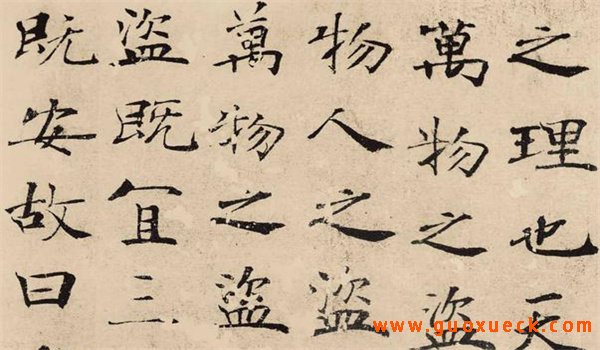 之理也天
萬物之盜
物人之盜
萬物之盜
盜既宜三
既安故曰
www.guoxueck.com